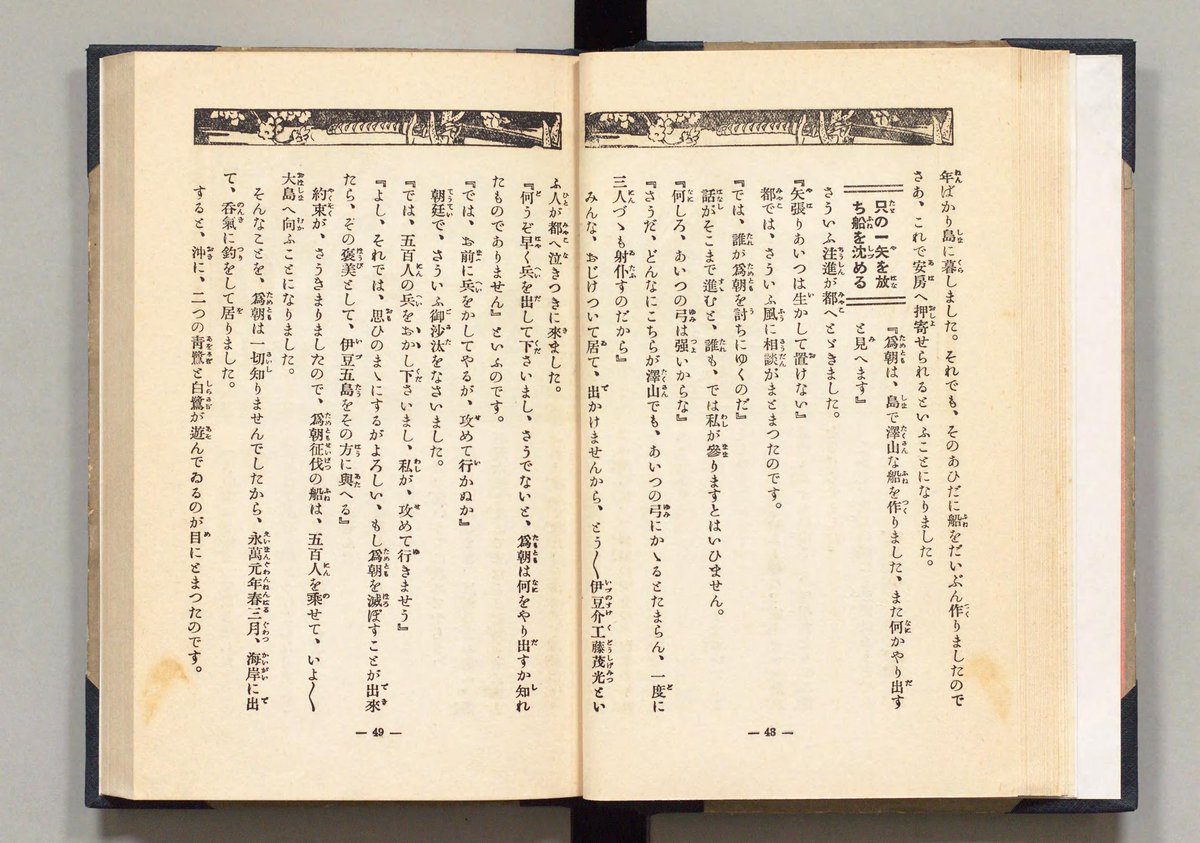 年ばかり島に暮しました。それでも、そのあひだに船をだいぶん作りましたので
さあ、これで安房へ押寄せられるといふことになりました。
只の一矢を放
ち船を沈める
『爲朝は、島で澤山な船を作りました、また何かやり出す
と見へます』
さういふ注進が都へとゞきました。
『矢張りあいつは生かして置けない』
都では、さういふ風に相談がまとまつたのです。
『では、誰が爲朝を討ちにゆくのだ』
話がそこまで進むと、誰も、では私が參りますとはいひません。
『何しろ、あいつの弓は强いからな』
『さうだ、どんなにこちらが澤山でも、あいつの弓にかゝるとたまらん、一度に
三人づゝも射仆すのだから』
みんな、おじけついて居て、出かけませんから、とう〱伊豆介工藤茂光とい
― 48 ―
ふ人が都へ泣きつきに來ました。
『何うぞ早く兵を出して下さいまし、さうでないと、爲朝は何をやり出すか知れ
たものでありません』といふのです。
『では、お前に兵をかしてやるが、攻めて行かぬか』
朝廷で、さういふ御沙汰をなさいました。
『では、五百人の兵をおかし下さいまし、私が、攻めて行きませう』
『よし、それでは、思ひのまゝにするがよろしい、もし爲朝を滅ぼすことが出來
たら、その褒美として、伊豆五島をその方に與へる』
約束が、さうきまりましたので、爲朝征伐の船は、五百人を乘せて、いよ〱
大島へ向ふことになりました。
そんなことを、爲朝は一切知りませんでしたから、永萬元年春三月、海岸に出
て、呑氣に釣をして居りました。
すると、沖に、二つの靑鷺と白鷺が遊んでゐるのが目にとまつたのです。
― 49 ―